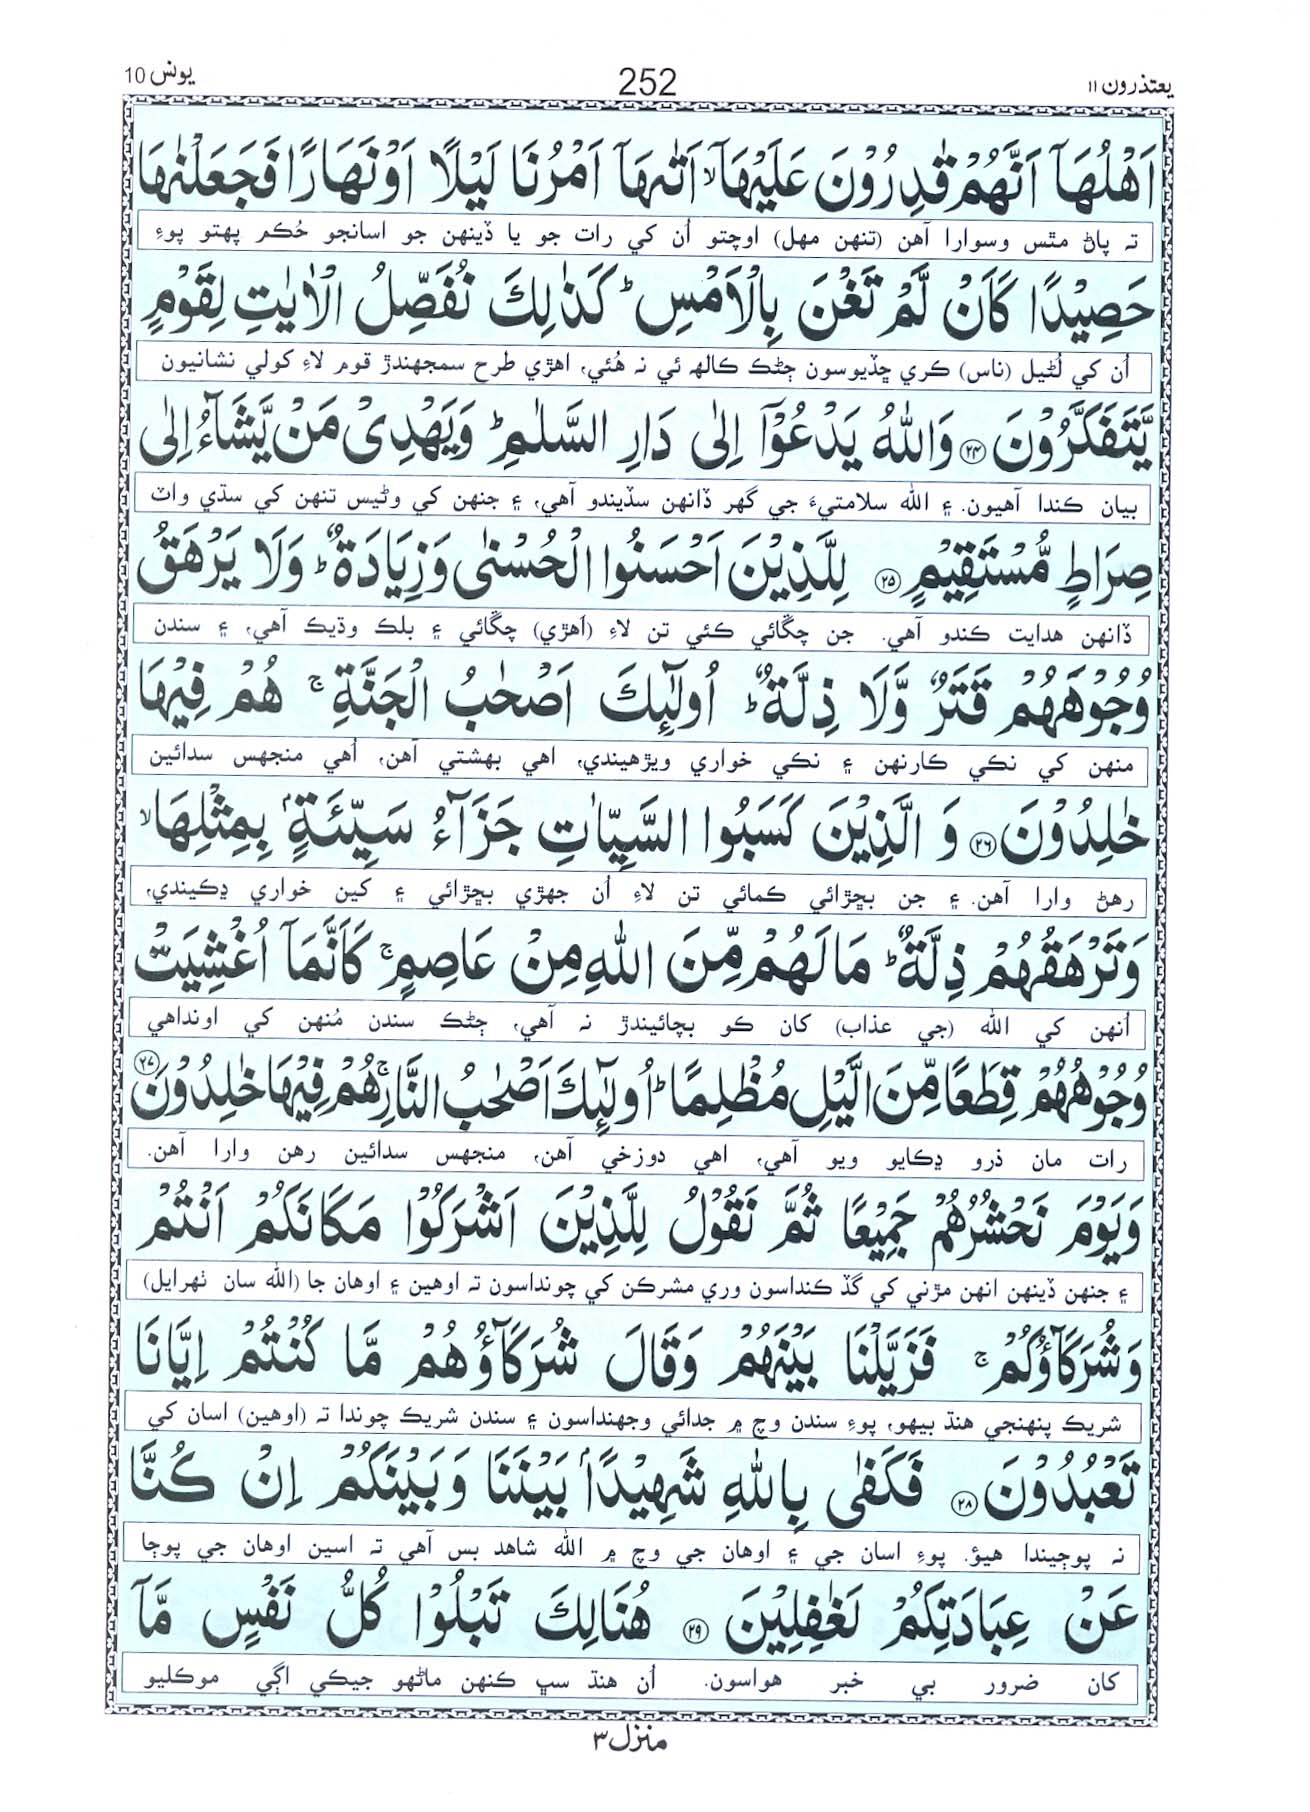 يعتذرون ١١
252
يونس 10
اَهْلُهَاۤ اَنَّهُمْ قٰدِرُوْنَ عَلَيْهَاۤ ۙ اَتٰىهَاۤ اَمْرُنَا لَيْلًا اَوْ نَهَارًا فَجَعَلْنٰهَا
تہ پاڻ مٿس وسوارا آهن (تنهن مهل) اوچتو اُن کي رات جو يا ڏينهن جو اسانجو حُڪم پهتو پوءِ
حَصِيْدًا كَاَنْ لَّمْ تَغْنَ بِالْاَمْسِ ؕ كَذٰلِكَ نُفَصِّلُ الْاٰيٰتِ لِقَوْمٍ
اُن کي لُڻيل (ناس) ڪري ڇڏيوسون ڄڻڪ ڪالهہ ئي نہ هُئي، اهڙي طرح سمجهندڙ قوم لاءِ کولي نشانيون
يَّتَفَكَّرُوْنَ ﴿۲۴﴾ وَاللّٰهُ يَدْعُوْۤا اِلٰى دَارِ السَّلٰمِ ؕ وَيَهْدِىْ مَنْ يَّشَآءُ اِلٰى
بيان ڪندا آهيون. ۽ الله سلامتيءَ جي گهر ڏانهن سڏيندو آهي، ۽ جنهن کي وڻيس تنهن کي سڌي واٽ
صِرَاطٍ مُّسْتَقِيْمٍ ﴿۲۵﴾ لِلَّذِيْنَ اَحْسَنُوا الْحُسْنٰى وَزِيَادَةٌ ؕ وَلَا يَرْهَقُ
ڏانهن هدايت ڪندو آهي. جن چڱائي ڪئي تن لاءِ (اَهڙي) چڱائي ۽ بلڪ وڌيڪ آهي، ۽ سندن
وُجُوْهَهُمْ قَتَرٌ وَّلَا ذِلَّةٌ ؕ اُولٰٓئِكَ اَصْحٰبُ الْجَنَّةِ ۚ هُمْ فِيْهَا
منهن کي نڪي ڪارنهن ۽ نڪي خواري ويڙهيندي، اهي بهشتي آهن، اُهي منجهس سدائين
خٰلِدُوْنَ ﴿۲۶﴾ وَ الَّذِيْنَ كَسَبُوا السَّيِّاٰتِ جَزَآءُ سَيِّئَةٍۭ بِمِثْلِهَا ۙ
رهڻ وارا آهن. ۽ جن بڇڙائي ڪمائي تن لاءِ اُن جهڙي بڇڙائي ۽ کين خواري ڍڪيندي،
وَتَرْهَقُهُمْ ذِلَّةٌ ؕ مَا لَهُمْ مِّنَ اللّٰهِ مِنْ عَاصِمٍ ۚ كَاَنَّمَاۤ اُغْشِيَتْ
اُنهن کي الله (جي عذاب) کان ڪو بچائيندڙ نہ آهي، ڄڻڪ سندن مُنهن کي اونداهي
وُجُوْهُهُمْ قِطَعًا مِّنَ الَّيْلِ مُظْلِمًا ؕ اُولٰٓئِكَ اَصْحٰبُ النَّارِ ۚ هُمْ فِيْهَا خٰلِدُوْنَ ﴿۲۷﴾
رات مان ذرو ڍڪايو ويو آهي، اهي دوزخي آهن، منجهس سدائين رهن وارا آهن.
وَيَوْمَ نَحْشُرُهُمْ جَمِيْعًا ثُمَّ نَقُوْلُ لِلَّذِيْنَ اَشْرَكُوْا مَكَانَكُمْ اَنْتُمْ
۽ جنهن ڏينهن انهن مڙني کي گڏ ڪنداسون وري مشرڪن کي چونداسون تہ اوهين ۽ اوهان جا (الله سان ٺهرايل)
وَشُرَكَآؤُكُمْ ۚ فَزَيَّلْنَا بَيْنَهُمْ وَقَالَ شُرَكَآؤُهُمْ مَّا كُنْتُمْ اِيَّانَا
شريڪ پنهنجي هنڌ بيهو، پوءِ سندن وچ ۾ جدائي وجهنداسون ۽ سندن شريڪ چوندا تہ (اوهين) اسان کي
تَعْبُدُوْنَ ﴿۲۸﴾ فَكَفٰى بِاللّٰهِ شَهِيْدًۢا بَيْنَنَا وَبَيْنَكُمْ اِنْ كُنَّا
نہ پوڄيندا هيؤ. پوءِ اسان جي ۽ اوهان جي وچ ۾ الله شاهد بس آهي تہ اسين اوهان جي پوڄا
عَنْ عِبَادَتِكُمْ لَغٰفِلِيْنَ ﴿۲۹﴾ هُنَالِكَ تَبْلُوْا كُلُّ نَفْسٍ مَّاۤ
کان ضرور بي خبر هواسون. اُن هنڌ سڀ ڪنهن ماڻهو جيڪي اڳي موڪليو
منزل ٣